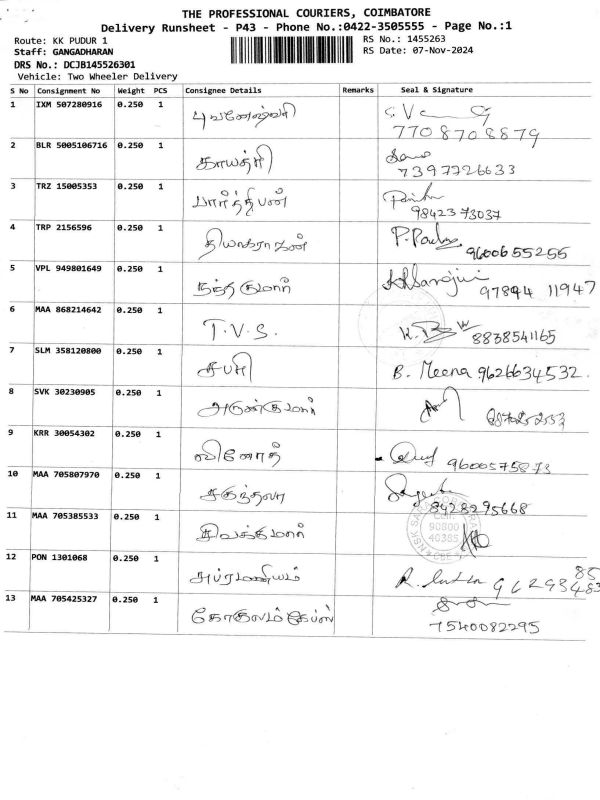 THE PROFESSIONAL COURIERS, COIMBATORE
Delivery Runsheet - P43 - Phone No.:0422-3505555 - Page No.:1
Route: KK PUDUR 1
RS No.: 1455263
Staff: GANGADHARAN
RS Date: 07-Nov-2024
DRS No.: DCJB145526301
Vehicle: Two Wheeler Delivery
S No Consignment No Weight PCS Consignee Details Remarks Seal & Signature
1 IXM 507280916 0.250 1 புவனேஷ்வரி
7708708879
2 BLR 5005106716 0.250 1 காயத்ரி
7397726633
3 TRZ 15005353 0.250 1 பார்த்திபன்
9842373037
4 TRP 2156596 0.250 1 தியாகராஜன்
9600655255
5 VPL 949801649 0.250 1 நந்தகுமார்
97894 11947
6 MAA 868214642 0.250 1 T.V.S.
8838541165
7 SLM 358120800 0.250 1 சபரி B. Meena 9626634532.
8 SVK 30230905 0.250 1 அருண்குமார்
9 KRR 30054302 0.250 1 வினோத்
9600575873
10 MAA 705807970 0.250 1 சகுந்தலா
8428295668
11 MAA 705385533 0.250 1 சிவக்குமார்
90800
40385
12 PON 1301068 0.250 1
13 MAA 705425327 0.250 1 கோகுலம்
7540082295